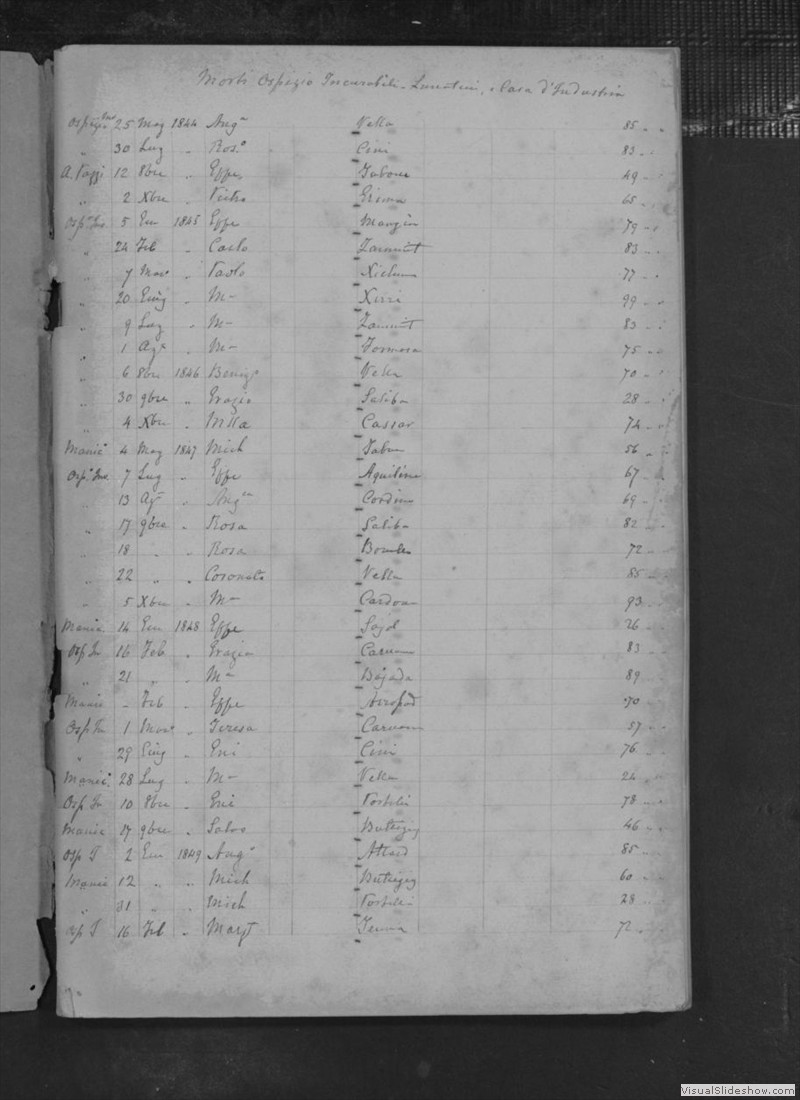 Morti Ospizio Incurabili - Lunatici, e Casa d'Industria
25 Mag 1844 Ang.a Vella 85 " "
" 30 Lug " Ros.a Cini 83 " "
12 8bre " 49 " "
" 2 Xbre " Pietro 65 " "
5 Gen 1845 Gppe 79 " "
" 24 Feb " Carlo Zammit 83 " "
" 7 Mar " Paolo 77 " "
" 20 Giug " M- Xirri 99 " "
" 9 Lug " M- Zammit 83 " "
" 1 Ag. " M- Formosa 75 " "
" 6 8bre 1846 Vella 70 " "
" 30 9bre " Grazia Saliba 28 " "
" 4 Xbre " Cassar 74 " "
Manic 4 Mag 1847 Mich 56 " "
Osp. Inc 7 Lug " Gppe Aquilina 67 " "
" 13 Ag. " Ang.a Cordina 69 " "
" 17 9bre " Rosa Saliba 82 " "
" 18 " " Rosa 72 " "
" 22 " " Coronata Vella 85 " "
" 5 Xbre " M- Cardona 93 " "
Manic 14 Gen 1848 Gppe 26 " "
Osp In 16 Feb " Grazia Caruana 83 " "
" 21 " " M- Bajada 89 " "
Manic - Feb " Gppe 70 " "
Osp In 1 Mar " Teresa Caruana 57 " "
" 29 Giug " Cini 76 " "
Manic 28 Lug " M- Vella 24 " "
Osp. In 10 8bre " Portelli 78 " "
Manic 17 9bre " Salvo Buttigieg 46 " "
Osp I 2 Gen 1849 Ang.a Attard 85 " "
Manic 12 " " Mich Buttigieg 60 " "
" 31 " " Mich Portelli 28 " "
Osp I 16 Feb " Margt 72 " "
VisualSlideshow.com